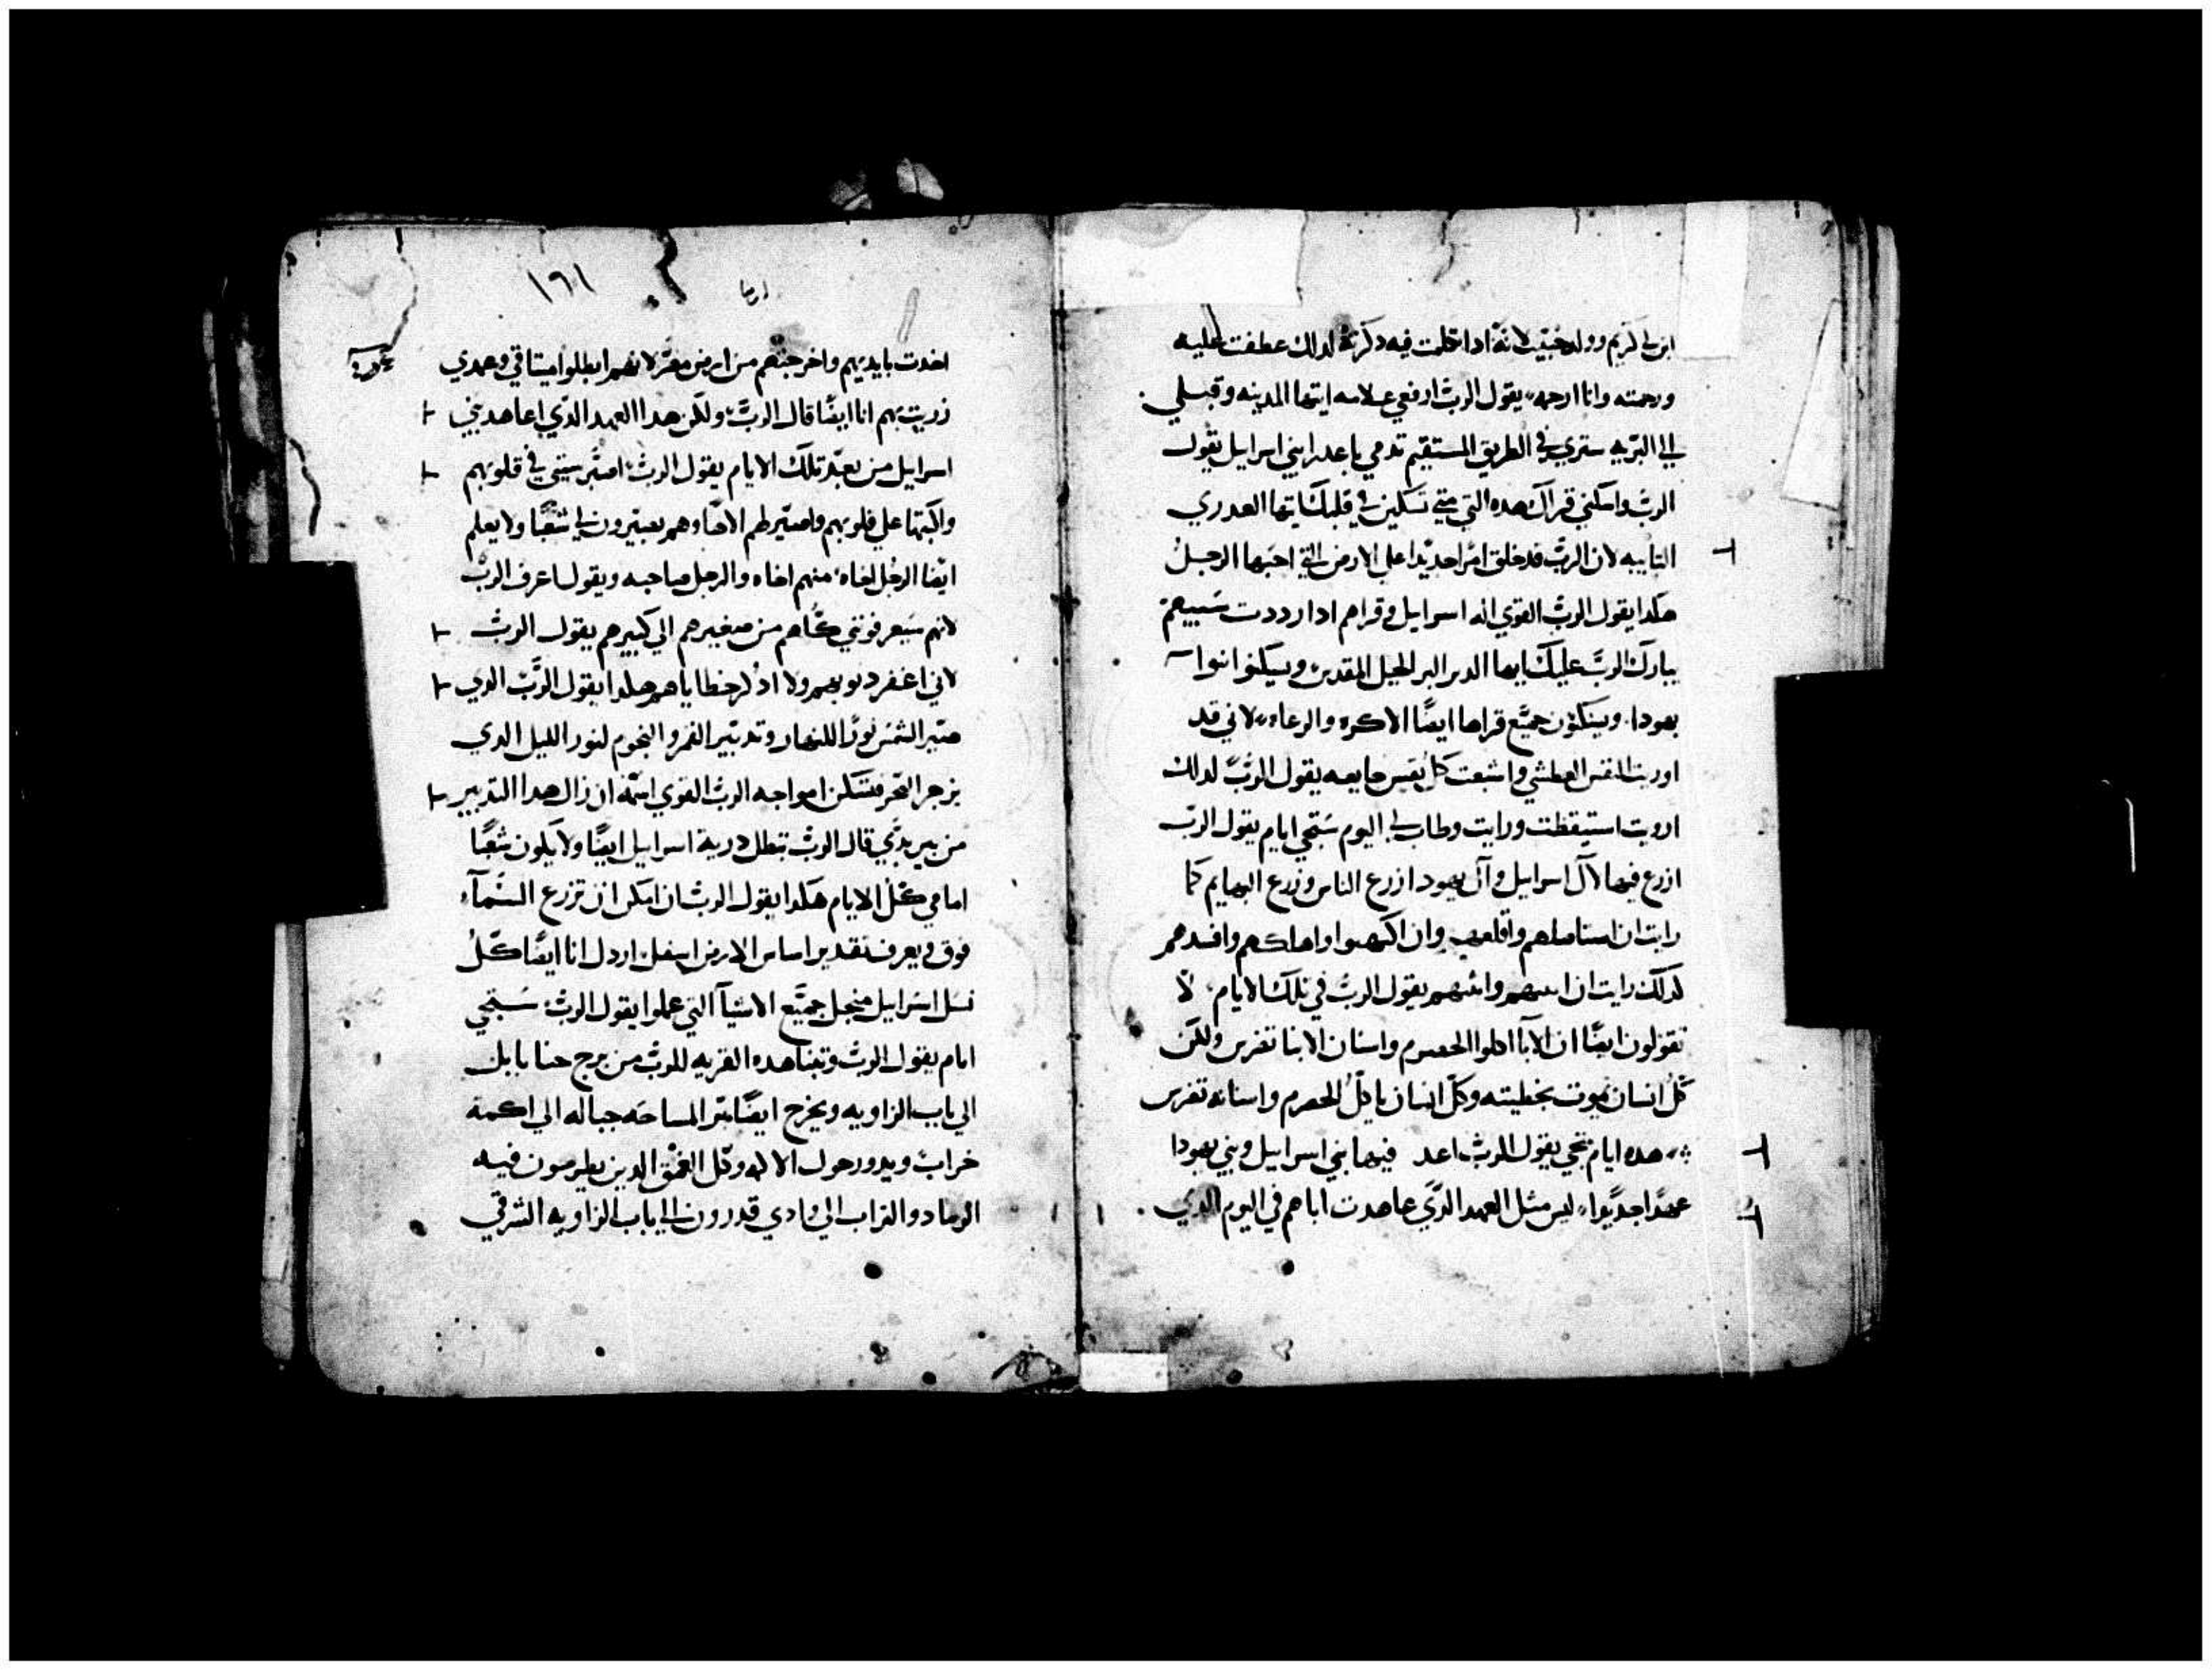 ابن لي كريم وولد حبيب لانه ادا دخلت فيه دكرته لدلك عطفت عليه
ورحمته وانا ارحمه يقول الرب ارفعي علامه ايتها المدينه وقبلي
الي البريه سترى في الطريق المستقيم تدمي يا عدرا بني اسراييل يقول
الرب واسكني قراك هده التي متي تسكنين في قلبك ايتها العدري
التايبه لان الرب قد خلق امرا جديدا علي الارض التي احبها الرجل
هكدا يقول الرب القوي اله اسراييل وقراهم ادا رددت سبيهم
يبارك الرب عليك ايها البر الجبل المقدس ويسكنوا
يهودا وينكون جميع قراها ايضا الاكره والرعاه لاني قد
اوريت النفس العطشي واشبعت كل نفس جايعه يقول الرب لدلك
ارويت استيقظت ورايت وطاب لي اليوم ستجي ايام يقول الرب
ازرع فيها لال اسراييل وال يهودا زرع الناس وزرع البهايم كما
رايت ان استاصلهم واقلعهم وان اكبهوا واهلكهم وافسدهم
كدلك رايت ان ابنيهم وانبتهم يقول الرب في تلك الايام لا
تقولون ايضا ان الابا اكلوا الحصرم واسنان الابنا تضرس ولكن
كل انسان يموت بخطيته وكل انسان ياكل الحصرم واسنانه تضرس
هده ايام تجي يقول الرب اعد فيها بني اسراييل وبني يهودا
عهدا جديدا ليس مثل العهد الدي عاهدت اباهم في اليوم الدي
١٦١
اخدت بايديهم واخرجتهم من ارض مصر لانهم ابطلوا ميتاقي وعهدي
زريت بهم انا ايضا قال الرب ولكن هدا العهد الدي اعاهد بني
اسراييل من بعد تلك الايام يقول الرب اصير سنتي في قلوبهم
واكتبها علي قلوبهم واصير لهم الاها وهم يصيرون لي شعبا ولا يعلم
ايضا الرجل اخاه منهم اخاه والرجل صاحبه ويقول اعرف الرب
لانهم سيعرفونني كلهم من صغيرهم الي كبيرهم يقول الرب
لاني اغفر دنوبهم ولا ادكر خطاياهم هكدا يقول الرب الدي
صير الشمس نورا للنهار وتدبير القمر والنجوم لنور الليل الدي
يزجر البحر فتسكن امواجه الرب القوي اسمه ان زال هدا التدبير
من بين يدي قال الرب تبطل درية اسراييل ايضا ولا يكون شعبا
امامي كل الايام هكدا يقول الرب ان امكن ان تزرع السماء
فوق ويعرف تقدير اساس الارض اسفل اردل انا ايضا كل
نسل اسراييل منجل جميع الاشيا التي عملوا يقول الرب ستجي
ايام يقول الرب وتبنا هده القريه للرب من برج حنا بابل
الي باب الزاويه ويخرج ايضا المساحه حباله الي اكمة
خراب ويدور حول الاكه وكل العمق الدين يطرحون فيه
الرماد والتراب الي وادي قدرون الي باب الزاويه الشرقي